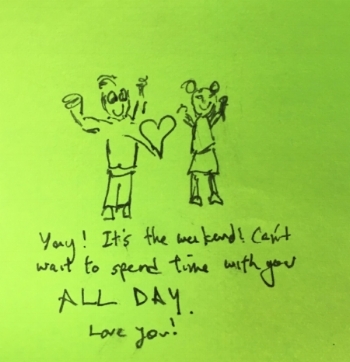 Yay! It's the weekend! Can't
wait to spend time with you
ALL DAY.
Love you!